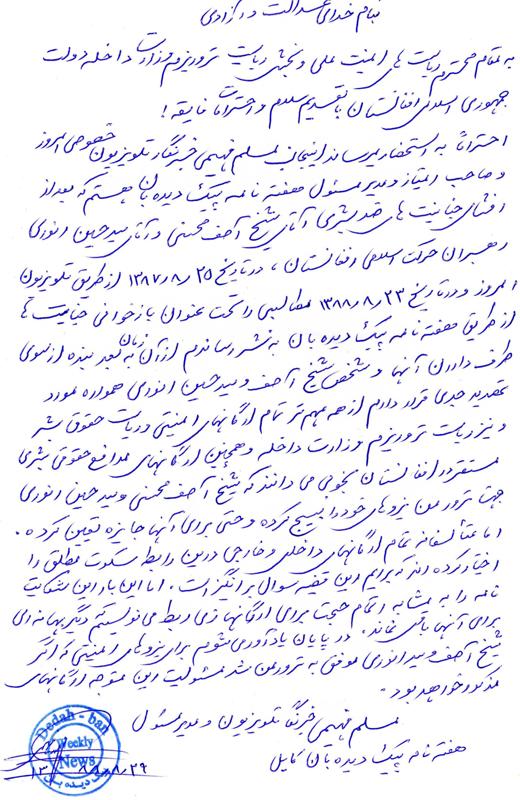 بنام خدای عدالت و آزادی
به مقام محترم ریاست های امنیت ملی و بخش ریاست تروریزم وزارت داخله دولت
جمهوری اسلامی افغانستان با تقدیم سلام و احترامات فایقه!
احتراماً به استحضار میرساند اینجانب مسلم فهیمی خبرنگار تلویزیون خصوصی امروز
و صاحب امتیاز و مدیر مسئول هفته نامه پیک دیده بان هستم که بعد از
افشای جنایت های ضد بشری آقای شیخ آصف محسنی و آقای سید حسین انوری
رهبران حرکت اسلامی افغانستان، در تاریخ ۱۳۸۷/۸/۲۵ از طریق تلویزیون
امروز و در تاریخ ۱۳۸۸/۸/۲۳ مطالبی را تحت عنوان بازخوانی جنایت ها
از طریق هفته نامه پیک دیده بان به نشر رساندم از آن زمان به بعد بنده از سوی
طرف داران آنها و شخص شیخ آصف و سید حسین انوری همواره مورد
تهدید جدی قرار دارم از همه مهم تر تمام ارگانهای امنیتی و ریاست حقوق بشر
و نیز ریاست تروریزم وزارت داخله و همچنین ارگانهای مدافع حقوق بشری
مستقر در افغانستان بخوبی می دانند که شیخ آصف محسنی و سید حسین انوری
جهت ترور من نیروهای خود را بسیج کرده و حتی برای آنها جایزه تعیین کرده.
اما متأسفانه تمام ارگانهای داخلی و خارجی درین رابطه سکوت مطلق را
اختیار کرده اند که برایم این قضیه سوال برانگیز است. اما این بار این شکایت
نامه را به مثابه اتمام حجت برای ارگانهای ذی ربط می نویسم دیگر بهانه ای
برای آنها باقی نماند. در پایان یادآوری میشوم برای نیروهای امنیتی که اگر
شیخ آصف و سید انوری موفق به ترور من شد مسئولیت این متوجه ارگانهای
مذکور خواهد بود.
مسلم فهیمی خبرنگار تلویزیون و مدیر مسئول
هفته نامه پیک دیده بان کابل
Dedah-ban
Weekly
News
پیک دیده بان